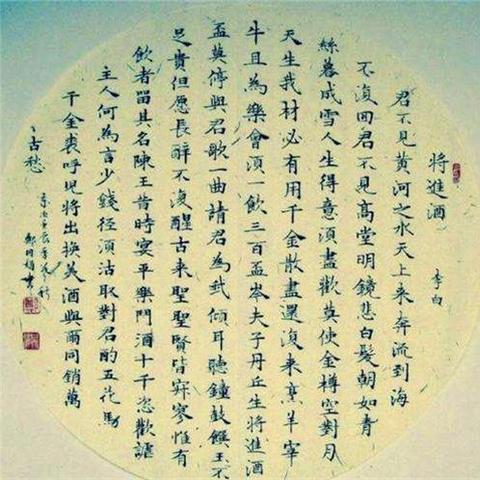 將進酒
李白
君不見黃河之水天上来奔流到海
不復回君不見高堂明鏡悲白髮朝如青
絲暮成雪人生得意須盡歡莫使金樽空對月
天生我材必有用千金散盡還復来烹羊宰
牛且為樂會須一飲三百盃岑夫子丹丘生將進酒
盃莫停與君歌一曲請君為我傾耳聽鐘鼓饌玉不
足貴但愿長醉不復醒古来聖聖賢皆寂寥惟有
飲者留其名陳王昔時宴平樂鬥酒十千恣歡謔
主人何為言少錢径須沽取對君酌五花馬
千金裘呼児將出換美酒與爾同銷萬
古愁